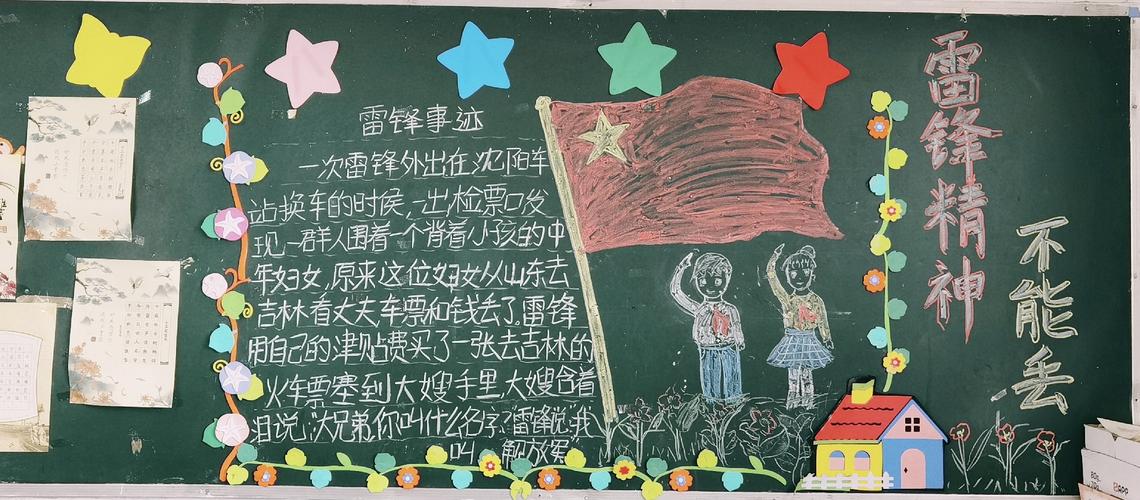 雷锋事迹
一次雷锋外出在沈阳车
站换车的时候,一出检票口发
现一群人围着一个背着小孩的中
年妇女,原来这位妇女从山东去
吉林看丈夫车票和钱丢了。雷锋
用自己的津贴费买了一张去吉林的
火车票塞到大嫂手里,大嫂含着
泪说:"大兄弟,你叫什么名字?"雷锋说:"我
叫 解放军"
雷锋精神
不能丢